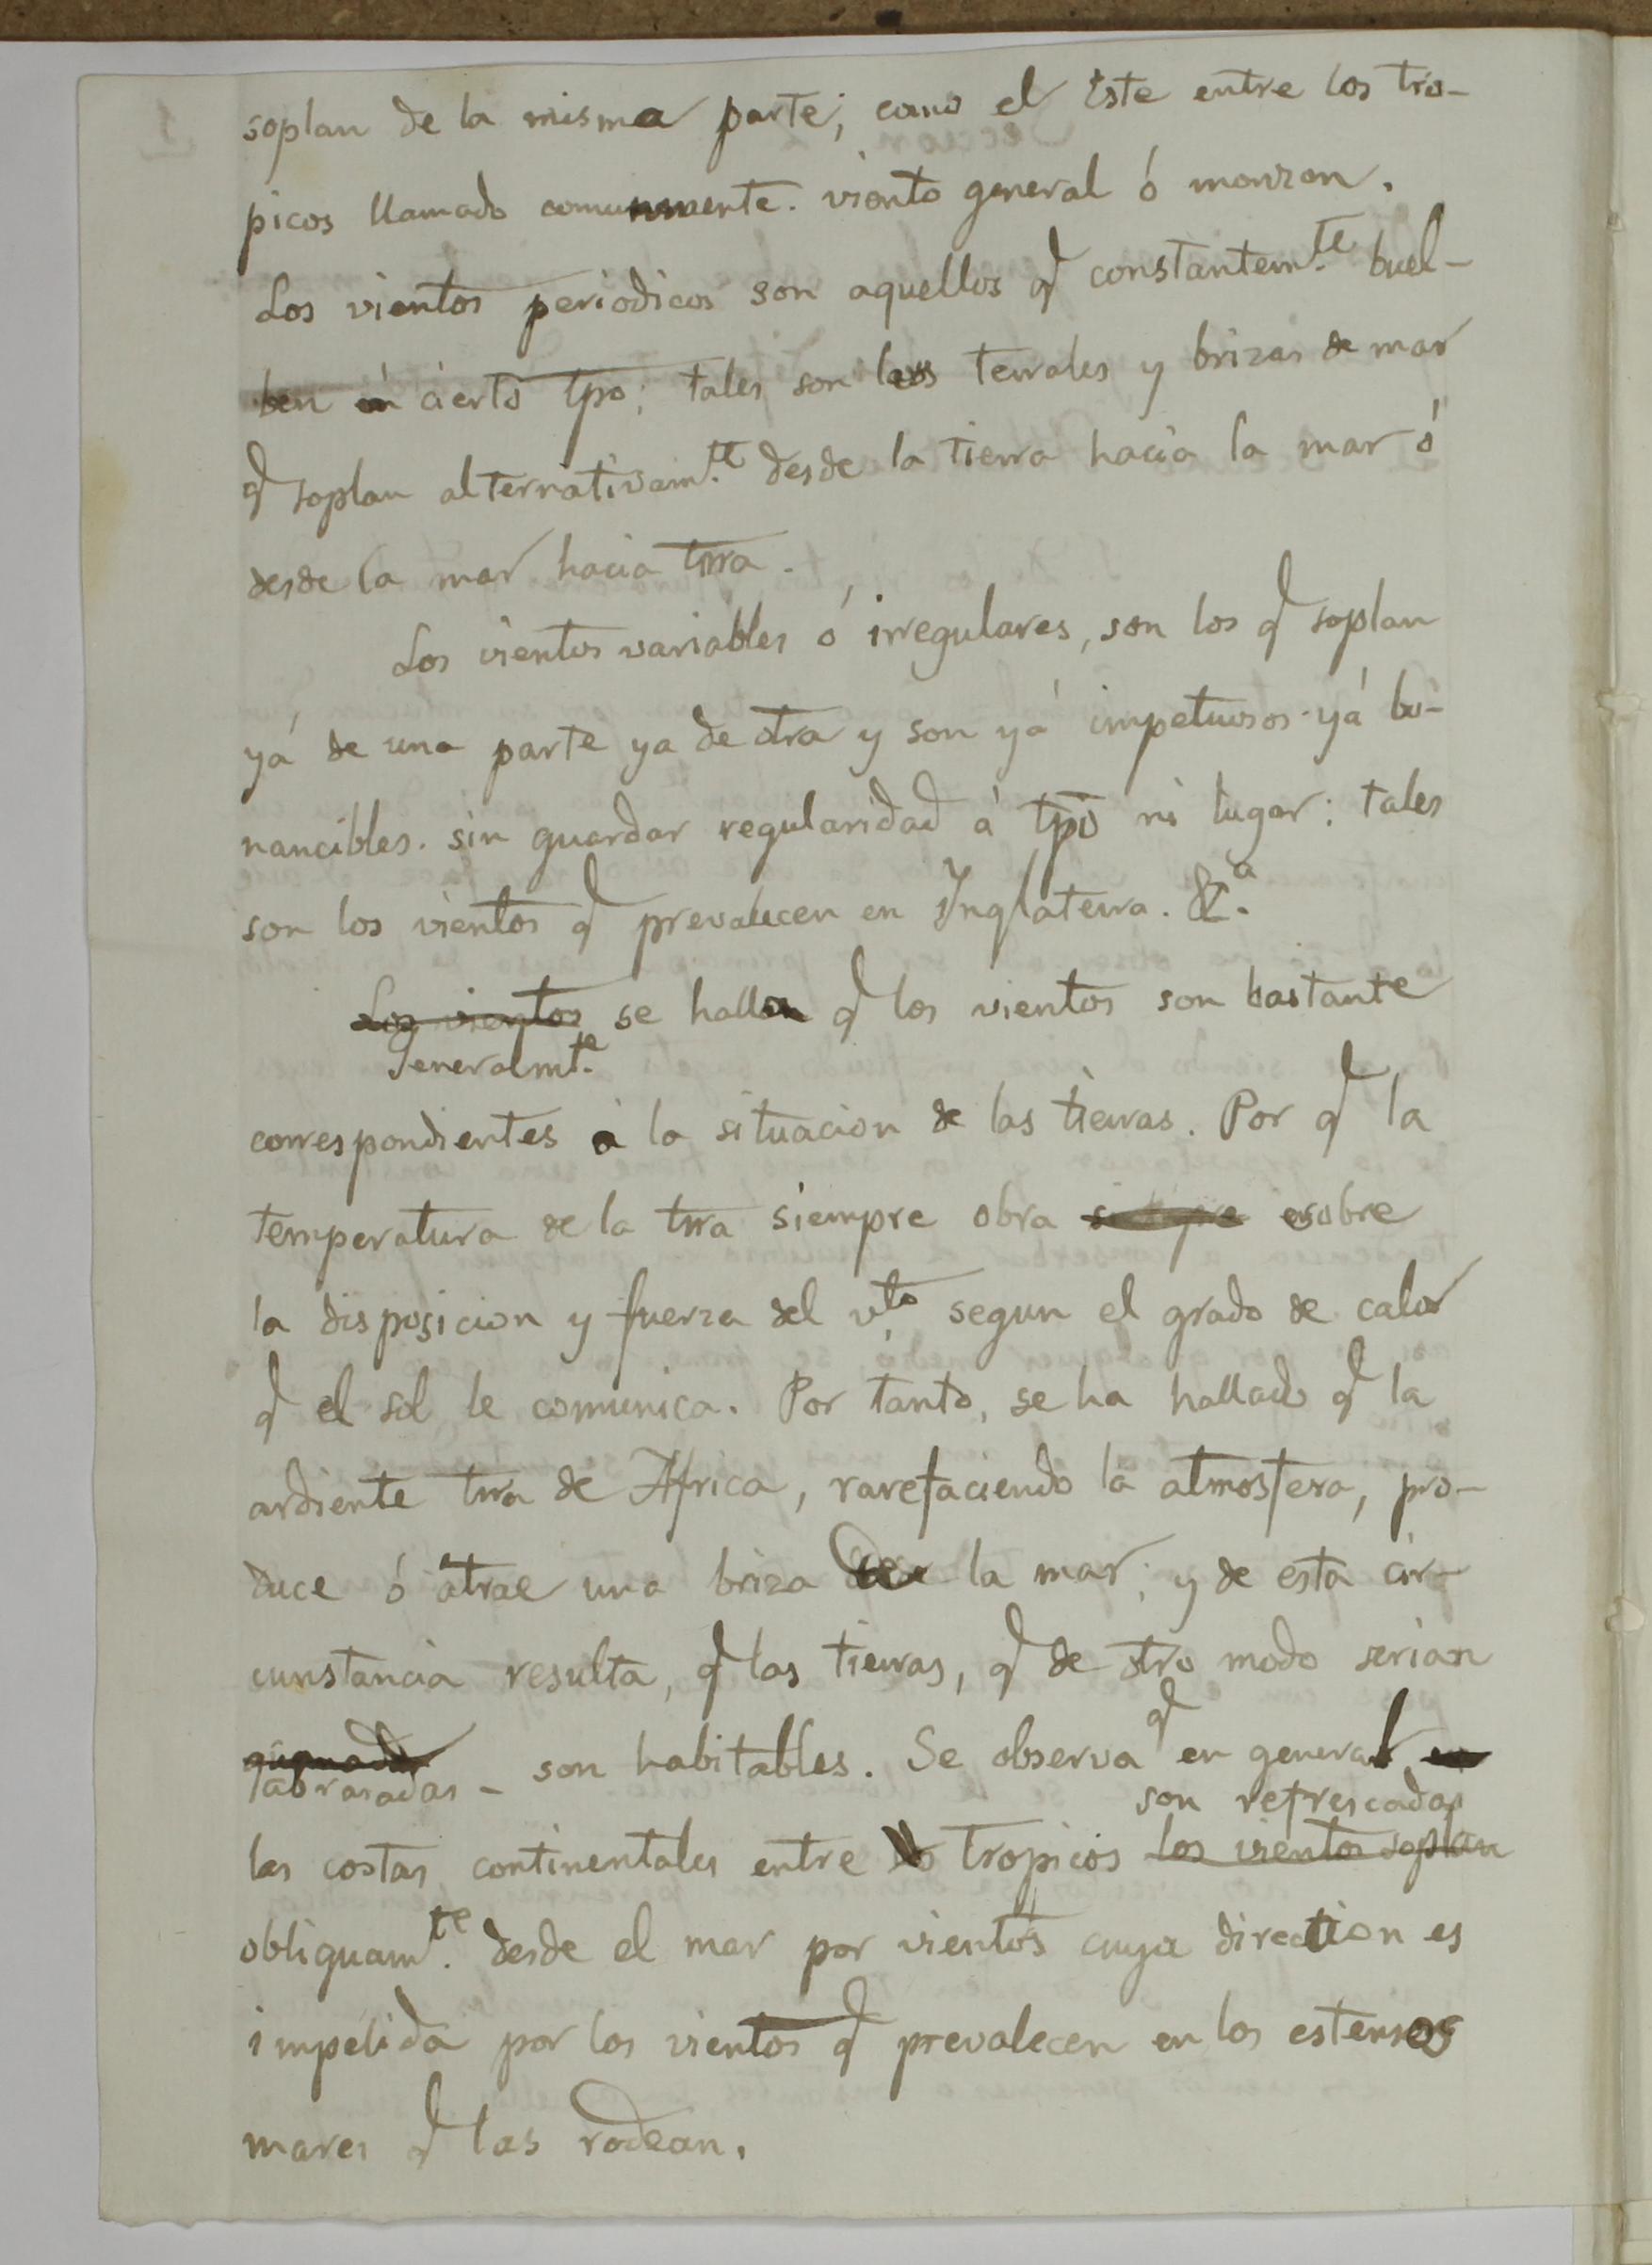 soplan de la misma parte; como el Este entre los tro-
picos llamado comunmente. viento general ó monzon.
Los vientos periodicos son aquellos q constantem.te buel-
ben en cierto tpo; tales son los terrales y brizas de mar
q soplan alternativam.te desde la tierra hacia la mar ó
desde la mar hacia trra.
Los vientos variables ó irregulares, son los q soplan
yá de una parte ya de otra y son yá impetuosos yá bo-
nancibles. sin guardar regularidad á tpo ni lugar: tales
son los vientos q prevalecen en Inglaterra. &.a
Los vientos se hallan q los vientos son bastante
Generalmt.e
correspondientes á la situacion de las tierras. Por q la
temperatura de la trra siempre obra siempre sobre
la disposicion y fuerza del vto segun el grado de calor
q el sol le comunica. Por tanto, se ha hallado q la
ardiente trra de Africa, rarefaciendo la atmosfera, pro-
duce ó atrae una briza de la mar; y de esta cir-
cunstancia resulta, q las tierras, q de otro modo serian
quemadas son habitables. Se observa q en general en
abrasadas - son refrescadas
las costas continentales entre los tropicos los vientos soplan
obliquam.te desde el mar por vientos cuya direction es
impelida por los vientos q prevalecen en los estensos
mares q las rodean.